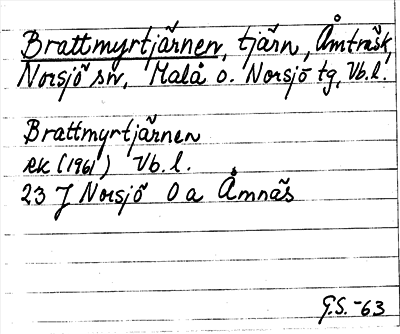 Brattmyrtjärnen, tjärn, Åmträsk,
Norsjö sn, Malå o. Norsjö tg, Vb.l.
Brattmyrtjärnen
RK (1961) Vb.l.
23 J Norsjö 0 a Åmnäs
G.S. -63